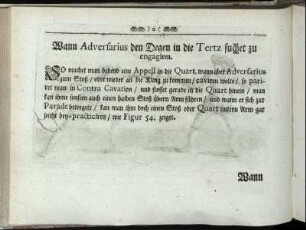 Wann Adversarius den Degen in die Tertz suchet zu
engagiern.
SO machet man behend ein Appell in die Quart, wann aber Adversarius
zum Stoß / oder wider an die Kling zu kommen / caviren wolte / so pari-
ret man in Contra Cavation / und stosset gerade in die Quart hinein / man
kan ihme sonsten auch einen halben Stoß übern Arm führen / und wann er sich zur
Parade beweget / kan man ihm doch einen Stoß oder Quart untern Arm gar
leicht bey-practiciren / wie Figur 54. zeiget.
Wann